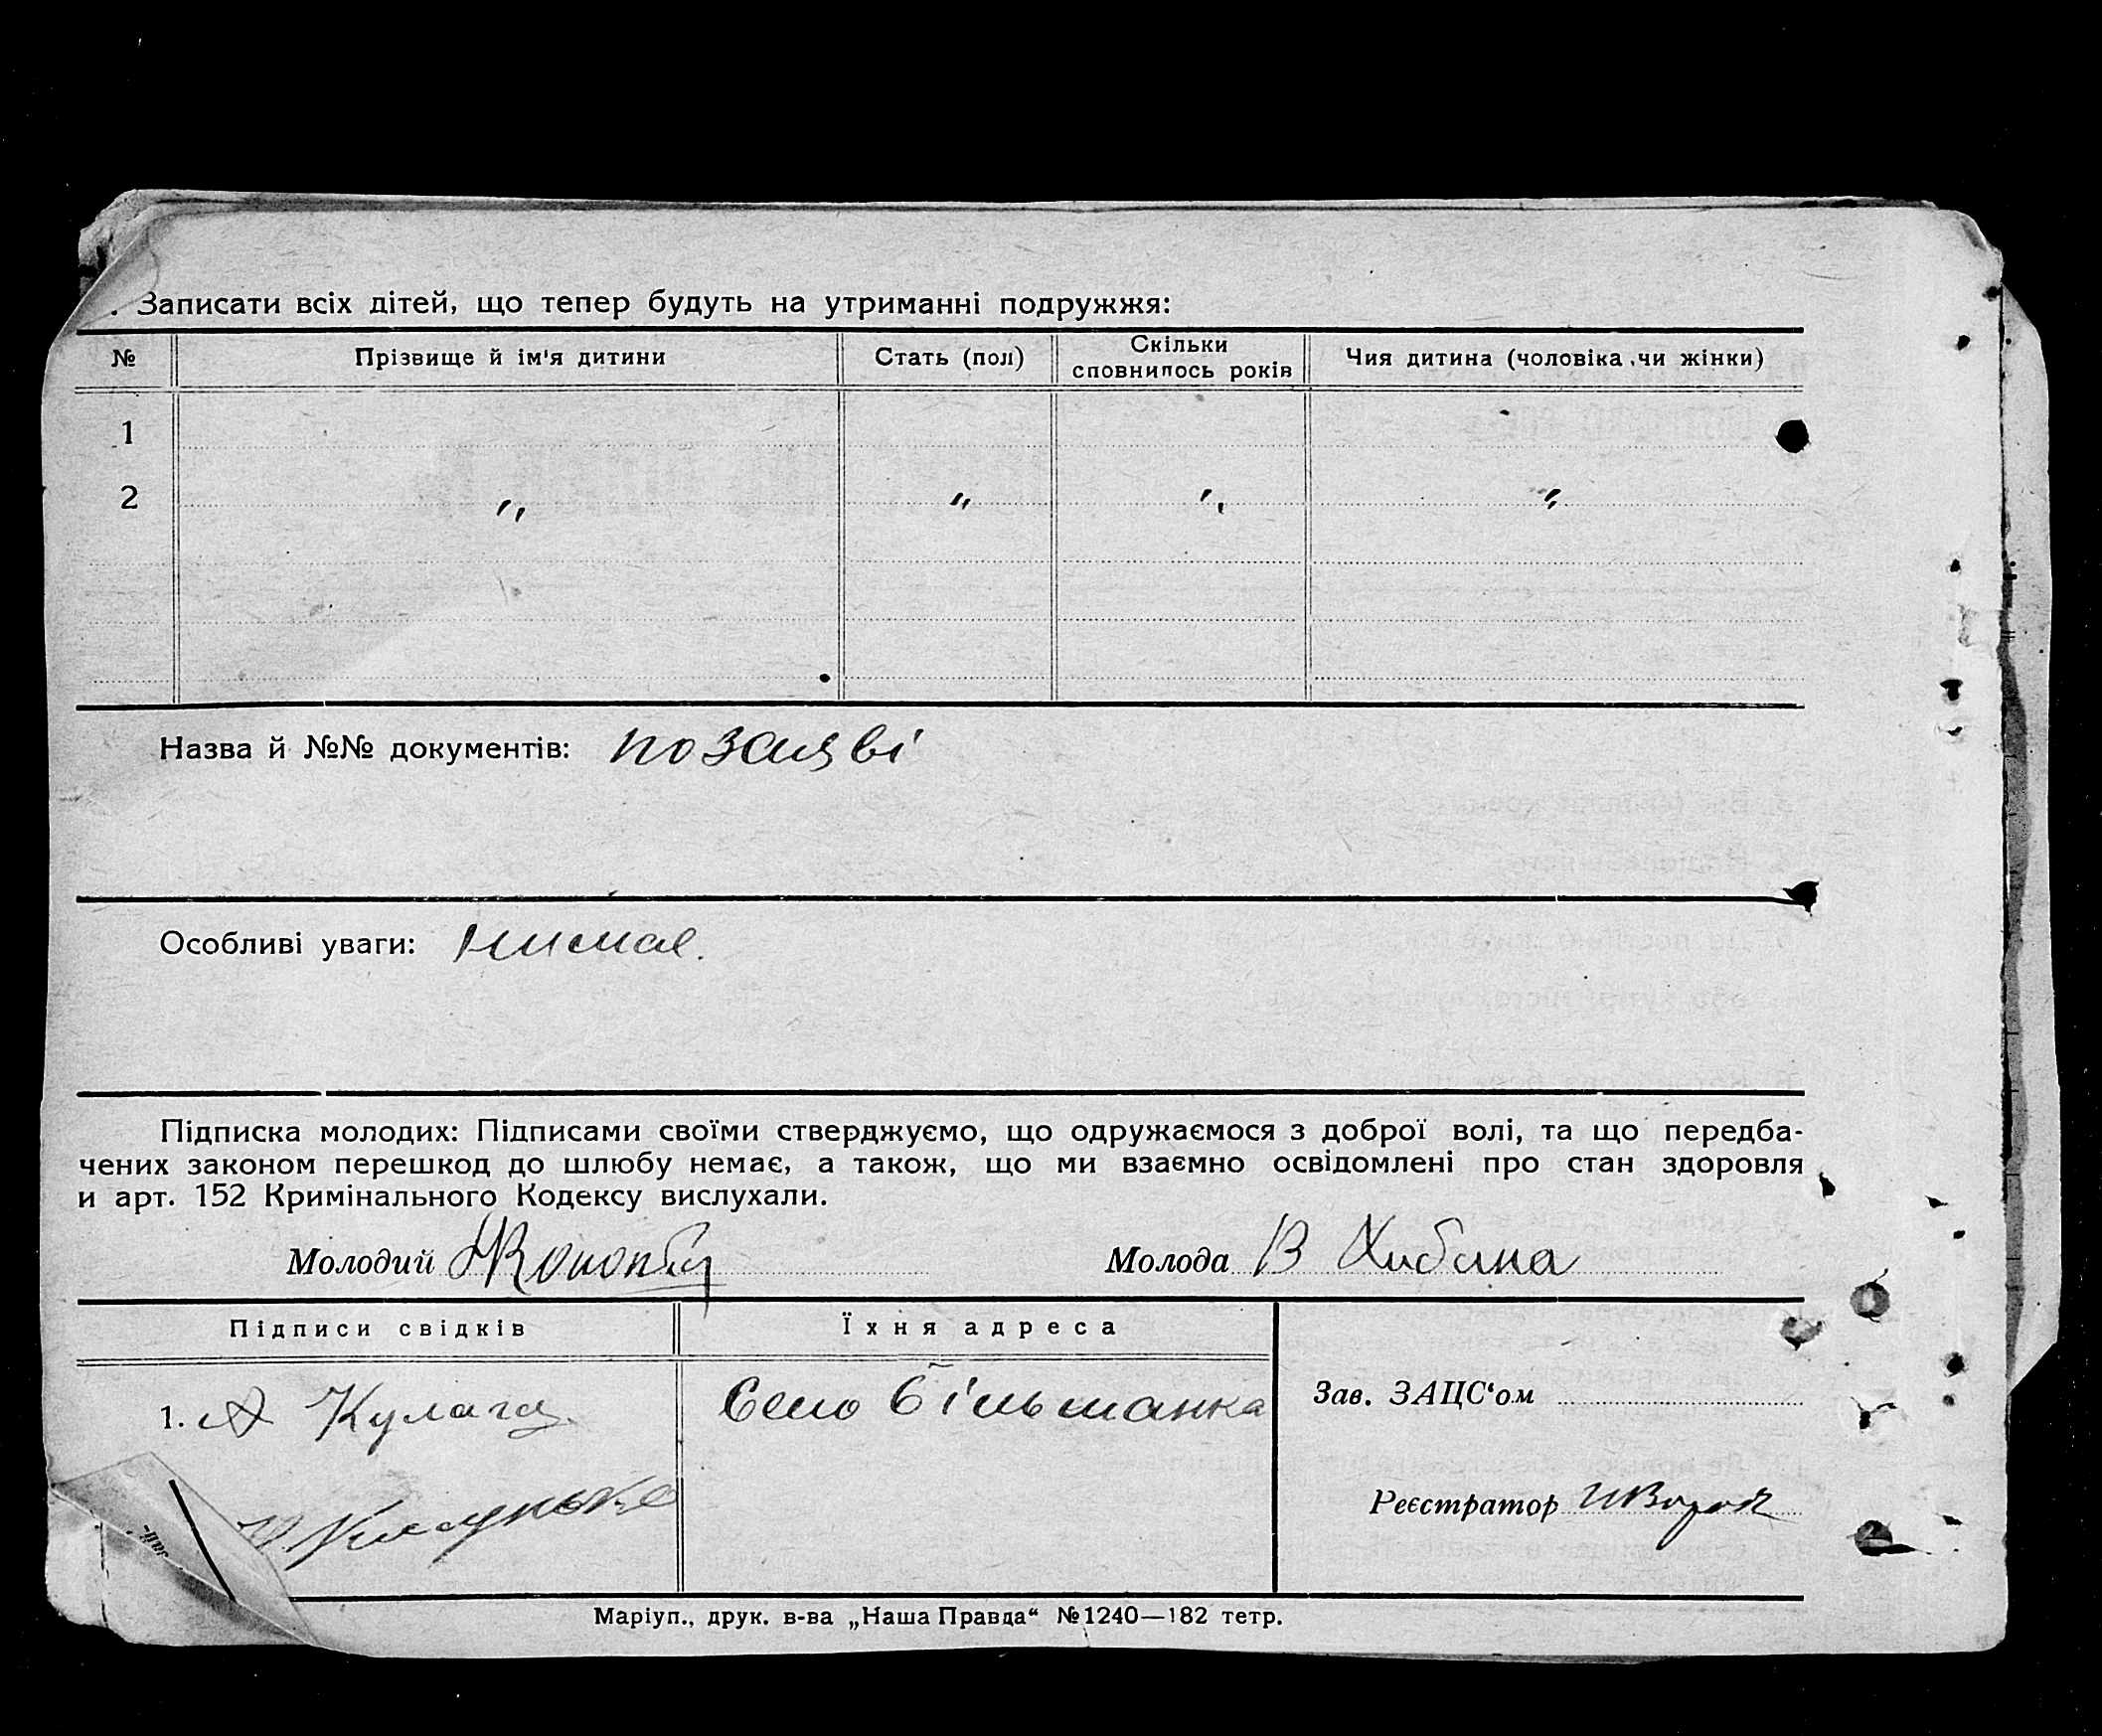 . Записати всіх дітей, що тепер будуть на утриманні подружжя:
№ Прізвище й ім'я дитини Стать (пол) Скільки сповнилось років Чия дитина (чоловіка чи жінки)
1
2 „ „ „ „
Назва й №№ документів: по заяві
Особливі уваги: нимае.
Підписка молодих: Підписами своїми стверджуємо, що одружаємося з доброї волі, та що передба-
чених законом перешкод до шлюбу немає, а також, що ми взаємно освідомлені про стан здоровля
и арт. 152 Кримінального Кодексу вислухали.
Молодий Молода В Хибина
Підписи свідків Їхня адреса
1. А Кулага Село Більманка Зав. ЗАЦС'ом
Реєстратор
Маріуп., друк. в-ва „Наша Правда“ №1240—182 тетр.